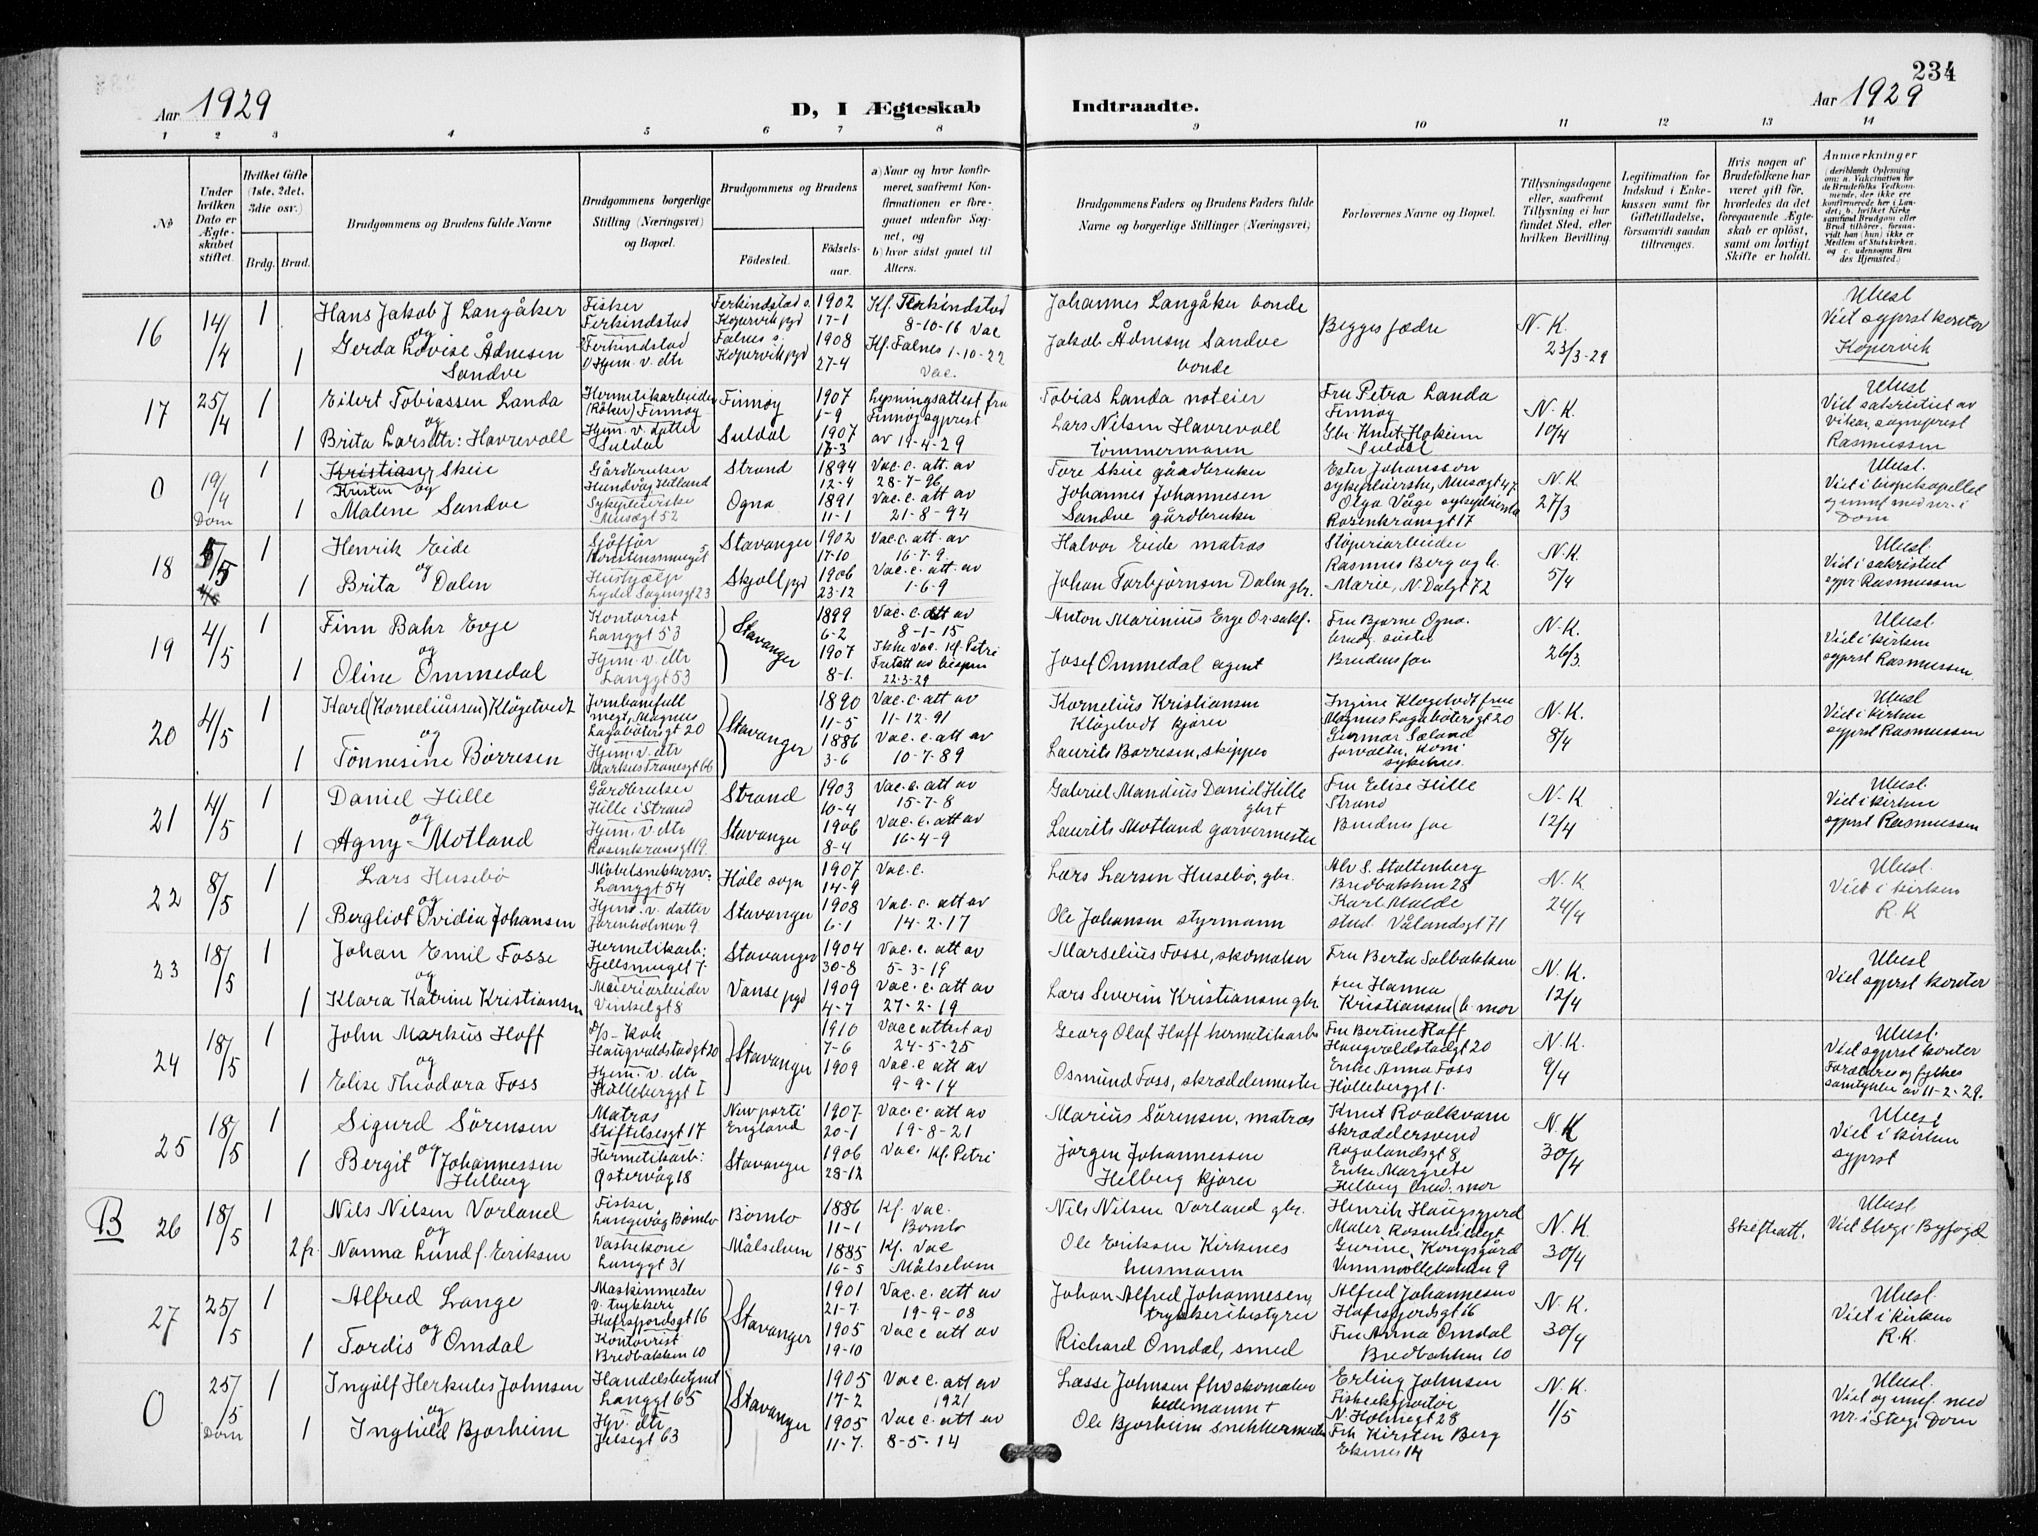 234
Aar 1929
D, I Ægteskab
Indtraadte.
Aar 1929
1 2 3 4 5 6 7 8 9 10 11 12 13 14
No
Under hvilken Dato er Ægteskabet stiftet.
Hvilket Gifte (1ste, 2det, 3die osv.)
Brdg. Brud.
Brudgommens og Brudens fulde Navne
Brudgommens borgerlige Stilling (Næringsvei) og Bopæl.
Brudgommens og Brudens
Fødested.
Fødselsaar.
a) Naar og hvor konfirmeret, saafremt Konfirmationen er foregaaet udenfor Sognet, og
b) hvor sidst gaaet til Alters.
Brudgommens Faders og Brudens Faders fulde Navne og borgerlige Stillinger (Næringsvei)
Forlovernes Navne og Bopæl.
Tillysningsdagene eller, saafremt Tillysning ei har fundet Sted, efter hvilken Bevilling.
Legitimation for Indskud i Enkekassen samt for Giftetilladelse, forsaavidt saadan tiltrænges.
Hvis nogen af Brudefolkene har været gift før, hvorledes da det foregaaende Ægteskab er opløst, samt om lovligt Skifte er holdt.
Anmærkninger (deriblandt Oplysning om: a. Vakcination for de Brudefolks Vedkommende, der ikke ere konfirmerede her i Landet; b. hvilket Kirkesamfund Brudgom eller Brud tilhører, forsaavidt han (hun) ikke er Medlem af Statskirken, og c. udensogns Brudes Hjemsted.)
16 14/4 1 Hans Jakob J Langåker Fisker Ferkindstad Ferkindstad s. Kopervik pgd 1902 17-1 Kf. Ferkindstad 8-10-16 Vac Johannes Langåker bonde Begges fædre N.K. 23/3-29 Ulest Viet sogprst kontor Kopervik
og
1 Gerda Lovise Ådnesen Sandve Ferkindstad Hjem. v. dtr Falnes s. Kopervik pgd 1908 27-4 Kf. Falnes 1-10-22 Vac. Jakob Ådnesen Sandve bonde
17 25/4 1 Eilert Tobiassen Landa Hermetikarbeider Finnøy Finnøy 1907 1-9 Løsningsattest fra Finnøy sogprest av 19-4-29 Tobias Landa noteier Fru Petra Landa Finnøy N.K. 10/4 Ulest Viet sakristiet av Vikar, sogneprest Rasmussen
og
1 Brita Larsdtr: Havrevoll Hjem. v. datter Suldal Suldal 1907 Lars Nilsen Havrevoll tømmermann Gbr. Knut Hoksem Suldal
O 19/4 Dom 1 Kristian, Skeie Kristen Gårdbruker Hundvåg Hetland Strand 1894 12-4 Vac. c. att. av 28-7-96 Tore Skeie gårdbruker Ester Johansson sykepleierske, Musegt 47 N.K 27/3 Ulest. Viet i bispekapellet og innf med nr. i Dom
og
1 Malene Sandve Sykepleierske Musegt 52 Ogna 1891 11-1 Vac. c. att av 21-8-94 Johannes Johannesen Sandve gårdbruker Olga Våge sykepleierske Rosenkransgt 17
18 5/5 1 Henrik Eide Sjåfør Stavanger 1902 17-10 Vac. c. att. av 16-7-9 Halvor Eide matros Støperiarbeider Rasmus Berg og h. N.K. 5/4 Ulest. Viet i sakristiet sogpr Rasmussen
og
1 Brita Dalen Hushjælp Lyder Sagensgt 23 Skjoll pgd 1906 23-12 Vac. c. att. av 1-6-9 Johan Torbjørnsen Dalen gbr. Marie, N. Dalgt 72
19 4/5 1 Finn Bahr Evje Kontorist Langgt 53 Stavanger 1899 6-2 Vac. c. att av 8-1-15 Anton Marinius Evje O.r.sakf. Fru Bjarne Ogna brudg. søster N.K. 26/3 Ulest. Viet i kirken sogprst Rasmussen
og
1 Oline Ommedal Hjem. v. dtr Langgt 53 1907 8-1. Ikke Vac. Kf. Petri Fritatt av bispen 22-3-29 Josef Ommedal agent Brudens far
20 4/5 1 Karl (Korneliussen) Kløgetvedt Jernbanefullmegt. Magnus Lagabøtersgt 20 Stavanger 1890 11-5 Vac. c. att av 11-12-91 Kornelius Kristiansen Kløgetvedt kjører Ingine Kløgetvedt frue Magnus Lagabøtersgt 20 N.K. 8/4 Ulest Viet i kirken sogprst Rasmussen
og
1 Tønnesine Børresen Hjem. v. dtr Markus Tranesgt 66 1886 3-6 Vac. c. att av 10-7-89 Laurits Børresen, skipper Gunnar Sæland forvalter, Kom. sykehus.
21 4/5 1 Daniel Hille Gårdbruker Hille i Strand Strand 1903 10-4 Vac. c. att av 15-7-8 Gabriel Mandius Daniel Hille gbr Fru Elise Hille Strand N.K 12/4 Ulest. Viet i kirken sogprst Rasmussen
og
1 Agny Motland Hjem. v. dtr Rosenkransgt 19. Stavanger 1906 8-4 Vac. c. att av 16-4-9 Laurits Motland garvermester Brudens far
22 8/5 1 Lars Husebø Møbelsnekkersv. Langgt 54 Høle sogn 1907 14-9 Vac. c. Lars Larsen Husebø, gbr. Alv S. Stoltenberg Bredbakken 28 N.K 24/4 Ulest. Viet i kirken R.K
og
1 Bergliot Ovidia Johansen Hjem. v. datter Jorenholmen 9 Stavanger 1908 6-1 Vac. c. att av 14-2-17 Ole Johansen styrmann Karl Malde stud. Vålandsgt 71
23 18/5 1 Johan Emil Fosse Hermetikarb: Fjellsmuget 7 Stavanger 1904 30-8 Vac. c. att av 5-3-19 Marselius Fosse, skomaker Fru Berta Solbakken N.K. 12/4 Ulest Viet sogprst kontor
og
1 Klara Katrine Kristiansen Meieriarbeider Vinkelgt 8 Vanse pgd 1909 4-7 Vac. c. att av 27-2-19 Lars Severin Kristiansen gbr. fru Hanna Kristiansen (b. mor
24 18/5 1 John Markus Hoff D/s- kok Haugvaldstadgt 20 Stavanger 1910 7-6 Vac c attest av 24-5-25 Georg Olaf Hoff hermetikarb Fru Bertine Hoff Haugvaldstadgt 20 N.K. 9/4 Ulest. Viet sogprst kontor Foreldres og fylkes samtykke av 11-2-29.
og
1 Elise Theodora Foss Hjem. v. dtr Holleberggt 1 1909 Vac. c att av 9-9-14 Osmund Foss, skræddermester Enke Anna Foss Holleberggt 1.
25 18/5 1 Sigurd Sørensen Matros Stiftelsesgt 17 Newport i England 1907 20-1 Vac. c. att av 19-8-21 Marius Sørensen, matros Knut Roalkvam Skræddersvend Rogalandsgt 8 N.K 30/4 Ulest Viet i kirken sogprst
og
1 Bergit Johannessen Helberg Hermetikarb: Østervåg 18 Stavanger 1906 28-12 Vac. Kf. Petri Jørgen Johannessen Helberg kjører Enke Margrete Helberg Brud. mor
B 26 18/5 1 Nils Nilsen Vorland Fisker Langevåg Bømlo Bømlo 1886 11-1 Kf. Vac. Bømlo Nils Nilsen Vorland gbr. Henrik Haugsgjerd Maler Rosenkildegt N.K. 30/4 Skifteatt. Ulest Viet Stvgr Byfogd
og
2 fr. Nanna Lund f. Eriksen Vaskekone Langgt 31 Målselven 1885 16-5 Kf. Vac Målselven Ole Eriksen Kirkenes husmann Gurine Kongsgård Vinnmøllebakken 9
27 25/5 1 Alfred Lange Maskinmester v. trykkeri Hafrsfjordsgt 16 Stavanger 1901 21-7. Vac. c. att av 19-9-08 Johan Alfred Johannesen, trykkeribestyrer Alfred Johannesen Hafrsfjordsgt 16 N.K. 30/4 Ulest. Viet i kirken R.K.
og
1 Tordis Omdal Kontorist Bredbakken 10 1905 19-10 Vac c att av Richard Omdal, smed Fru Anna Omdal Bredbakken 10
O 25/5 Dom 1 Ingolf Herkules Johnsen Handelsbetjent Langgt 65 Stavanger 1905 17-2 Vac c. att av 1921 Lasse Johnsen fhv skomaker Erling Johnsen Fiskeeksportør N. Holmegt 28 N.K. 1/5 Ulest. Viet og innf. med nr. i Stvgr Dom
og
1 Inghild Bjorheim Hjv. dtr. Jelsegt 63 1905 11-7. Vac c. att av 8-5-14 Ole Bjorheim snekkermester Frk Kirsten Berg Eknes 14